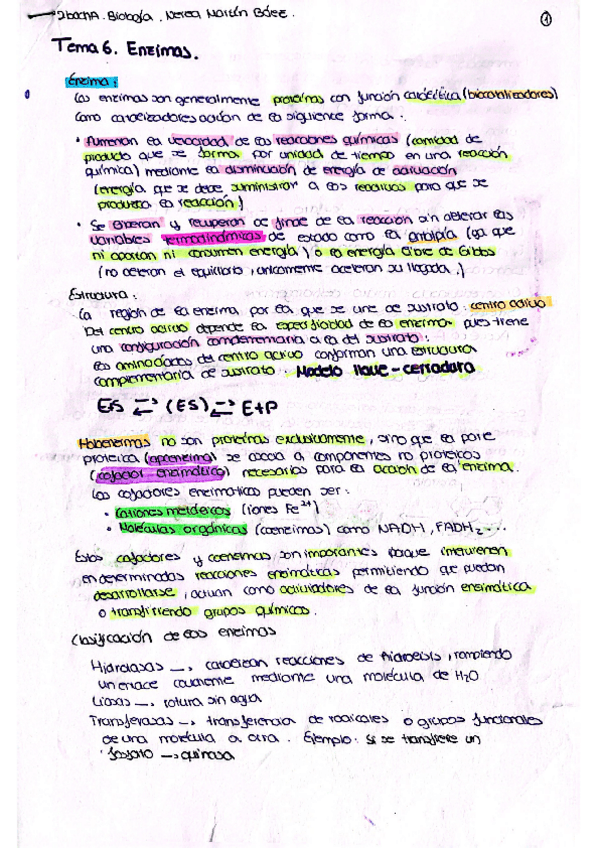 2bachA. Biología. Nerea Martín Báez.
1
Tema 6. Enzimas.
Enzima:
Las enzimas son generalmente proteínas con función catalítica (biocatalizadores)
Como catalizadores actúan de la siguiente forma:
• Aumentan la velocidad de las reacciones químicas (cantidad de
producto que se forma por unidad de tiempo en una reacción
química) mediante la disminución de energía de activación
(energía que se debe suministrar a los reactivos para que se
produzca la reacción)
• Se liberan y recuperan al final de la reacción sin alterar las
variables termodinámicas de estado como la entalpía (ya que
ni aportan ni consumen energía) o la energía libre de Gibbs
(no alteran el equilibrio, únicamente aceleran su llegada.)
Estructura:
La región de la enzima por la que se une al sustrato: centro activo
Del centro activo depende la especificidad de la enzima pues tiene
una configuración complementaria a la del sustrato.
Los aminoácidos del centro activo conforman una estructura
complementaria al sustrato. Modelo llave-cerradura
E+S ⇄ (ES) ⇄ E+P
Holoenzimas no son proteínas exclusivamente, sino que la parte
proteica (apoenzima) se asocia a componentes no proteicos
(cofactor enzimático) necesarios para la acción de la enzima.
Los cofactores enzimáticos pueden ser:
• Cationes metálicos (iones Fe²⁺)
• Moléculas orgánicas (coenzimas) como NADH, FADH₂...
Estos cofactores y coenzimas son importantes porque intervienen
en determinadas reacciones enzimáticas permitiendo que puedan
desarrollarse, actúan como activadores de la función enzimática
o transfiriendo grupos químicos.
Clasificación de las enzimas
Hidrolasas → catalizan reacciones de hidrólisis, rompiendo
un enlace covalente mediante una molécula de H₂O
Liasas → rotura sin agua
Transferasas → transferencia de radicales o grupos funcionales
de una molécula a otra. Ejemplo: si se transfiere un
fosfato → quinasa